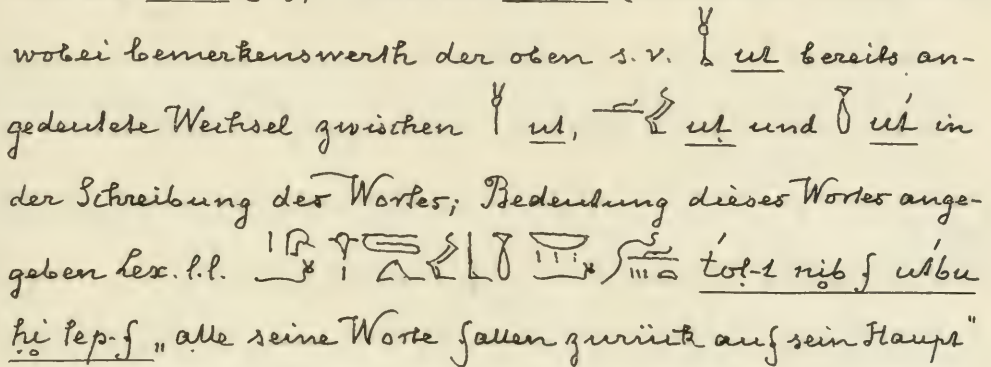 wobei bemerkenswerth der oben s. v. ut bereits an-
gedeutete Wechsel zwischen ut, uṭ und ut́ in
der Schreibung des Wortes; Bedeutung dieses Wortes ange-
geben Lex. l.l. t́oṭ-t nib f ut́bu
ḥi tep-f „alle seine Worte fallen zurück auf sein Haupt"